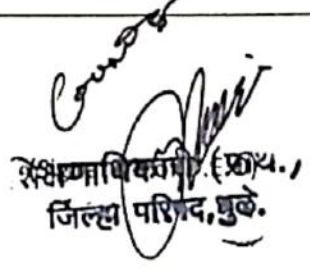 शिक्षणाधिकारी (प्राथ.,
जिल्हा परिषद, धुळे.